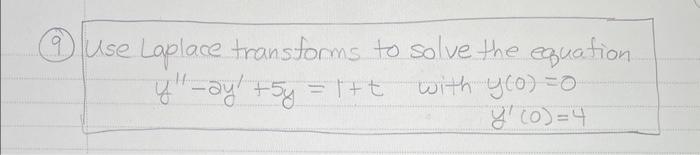 ⑨ Use Laplace transforms to solve the equation
y'' - 2y' + 5y = 1 + t with y(0) = 0
y'(0) = 4